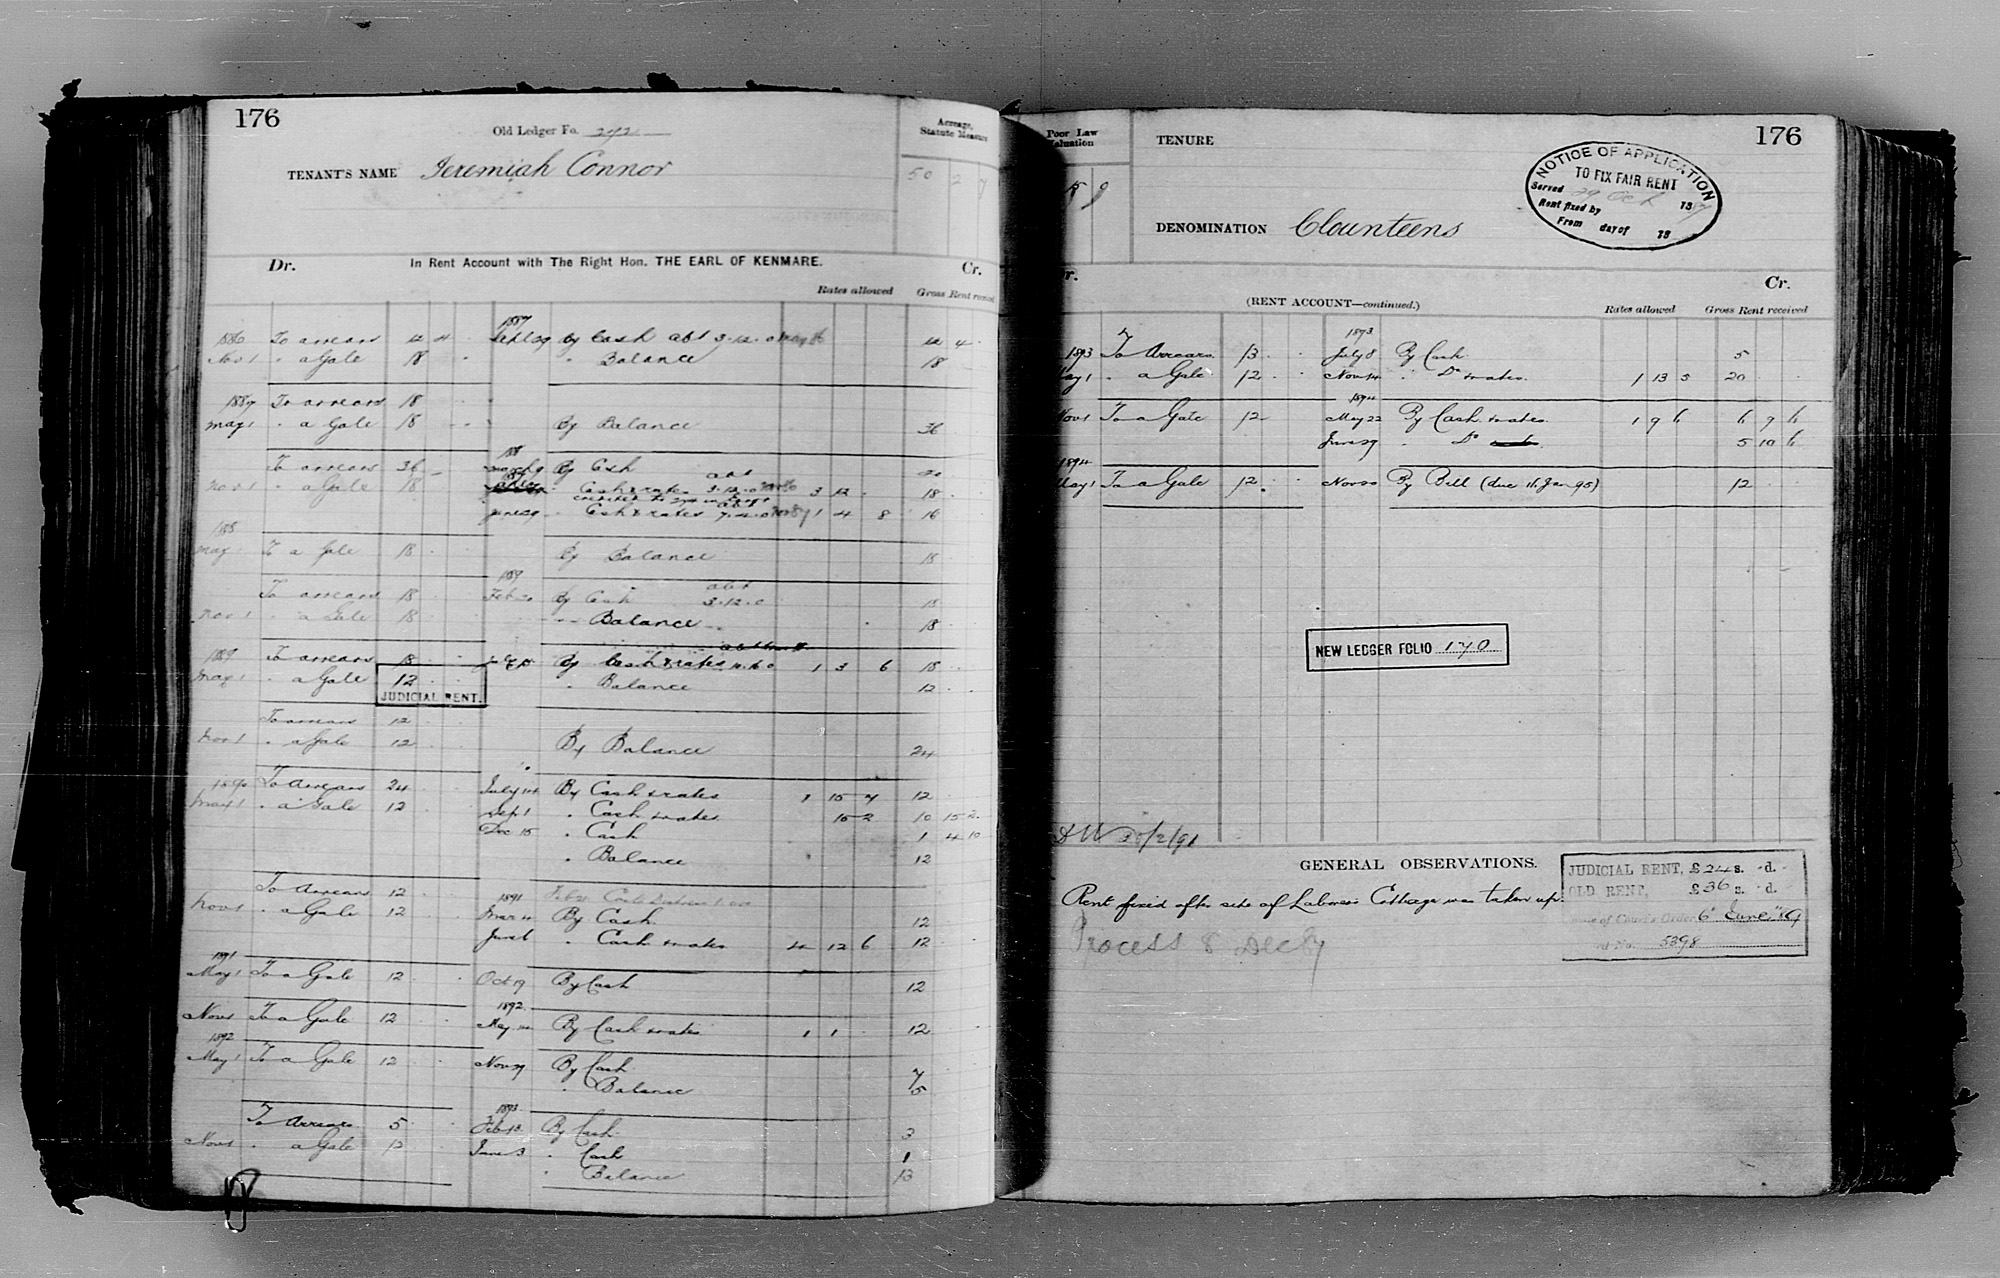 176
Old Ledger Fo. 272
TENANT'S NAME Jeremiah Connor
Acreage, Statute Measure
50 2 7
Dr. In Rent Account with The Right Hon. THE EARL OF KENMARE. Cr.
Rates allowed Gross Rent received
1887
1886 To arrears 12 4 Sept 29 By Cash abt 3.12.0 May 86 12 4
Nov 1 " a Gale 18 " Balance 18
1887 To arrears 18
May 1 " a Gale 18 By Balance 36
188
To arrears 36 March 9 By Cash abt 20
Nov 1 " a Gale 18 Cash & rates 3.12.0 3 12 18
June 29 " Cash & rates 7.4.0 Nov 87 1 4 8 16
1888
May 1 To a Gale 18 By Balance 18
1889
To arrears 18 Feb By Cash abt 3.12.0 18
Nov 1 " a Gale 18 Balance 18
1889 To arrears 18 By Cash & rates 1 3 6 18
May 1 " a Gale 12 " Balance 12
JUDICIAL RENT.
To arrears 12
Nov 1 " a Gale 12 By Balance 24
1890 To Arrears 24 July 14 By Cash & rates 1 15 7 12
May 1 " a Gale 12 Sep 1 " Cash & rates 15 2 10 15 2
Dec 15 " Cash 1 4 10
" Balance 12
To Arrears 12 1891 Feb 21
Nov 1 " a Gale 12 Mar 11 By Cash 12
June 6 " Cash & rates 4 12 6 12
1891
May 1 To a Gale 12 Oct 19 By Cash 12
1892
Nov 1 To a Gale 12 May By Cash & rates 1 1 12
1892
May 1 To a Gale 12 Nov 29 By Cash 7
" Balance 5
1893
To Arrears 5 Feb 13 By Cash 3
Nov 1 " a Gale 12 June 3 " Cash 1
" Balance 13
Poor Law Valuation
TENURE
176
NOTICE OF APPLICATION
TO FIX FAIR RENT
Served 29 Oct 1887
Rent fixed by
From day of 18
DENOMINATION Clounteens
Dr. Cr.
(RENT ACCOUNT—continued.) Rates allowed Gross Rent received
1893
1893 To Arrears 13 July 8 By Cash 5
May 1 " a Gale 12 Nov 14 " Do & rates 1 13 5 20
1894
Nov 1 To a Gale 12 May 22 By Cash & rates 1 9 6 6 9 6
June 29 " Do 5 10 6
1894
May 1 To a Gale 12 Nov 20 By Bill (due 16 Jan 95) 12
NEW LEDGER FOLIO 170
GENERAL OBSERVATIONS.
JUDICIAL RENT, £24 s. d.
OLD RENT, £36 s. d.
Date of Court's Order 6 June '89
Rd No. 5398
Rent fixed after site of Laborers Cottage was taken up.
Process 8 Dec 87